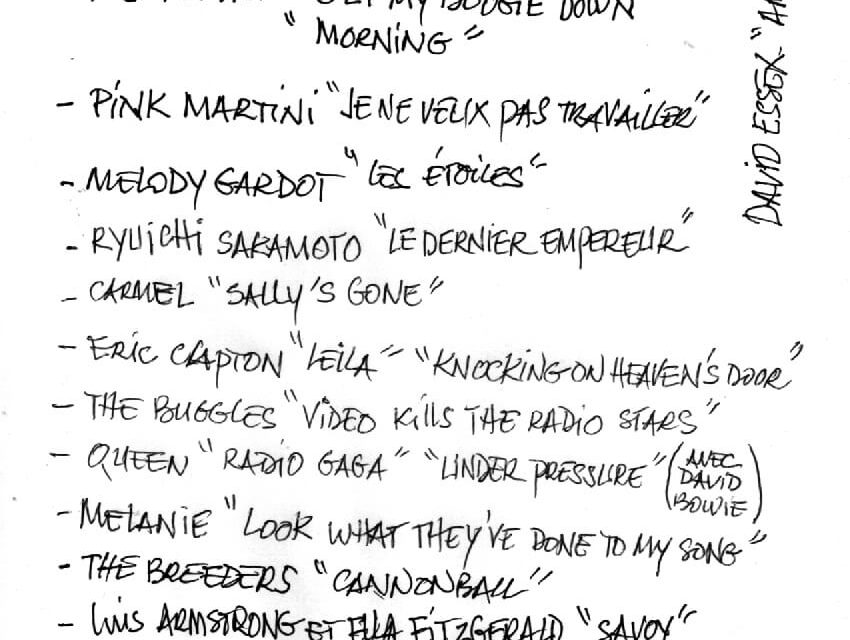 MY BOOGIE DOWN
" MORNING "
- PINK MARTINI "JE NE VEUX PAS TRAVAILLER"
- MELODY GARDOT "LES ÉTOILES"
- RYUICHI SAKAMOTO "LE DERNIER EMPEREUR"
- CARMEL "SALLY'S GONE"
- ERIC CLAPTON "LEILA" "KNOCKING ON HEAVEN'S DOOR"
- THE BUGGLES "VIDEO KILLS THE RADIO STARS"
- QUEEN "RADIO GAGA" "UNDER PRESSURE" (AVEC DAVID BOWIE)
- MELANIE "LOOK WHAT THEY'VE DONE TO MY SONG"
- THE BREEDERS "CANNONBALL"
- LUIS ARMSTRONG ET ELLA FITZGERALD "SAVOY"
DAVID ESSEX